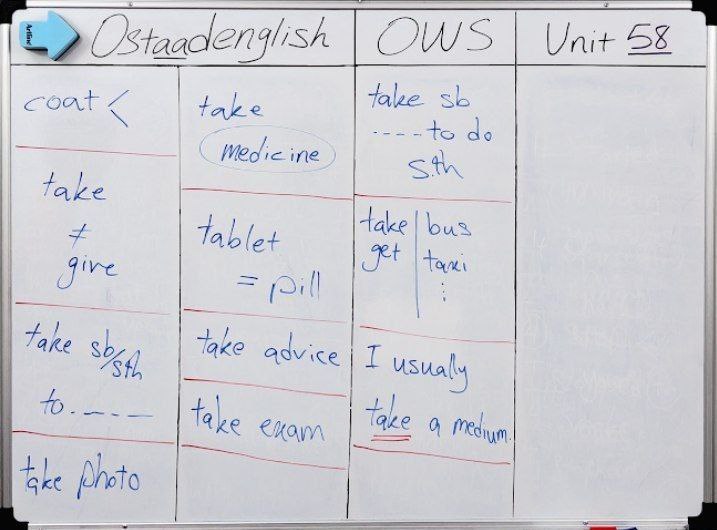 Artline
Ostaadenglish
OWS
Unit 58
coat <
take
≠
give
take sb/sth
to.----
take photo
take
medicine
tablet
= pill
take advice
take exam
take sb
----to do
s.th
take | bus
get | taxi
⋮
I usually
take a medium.